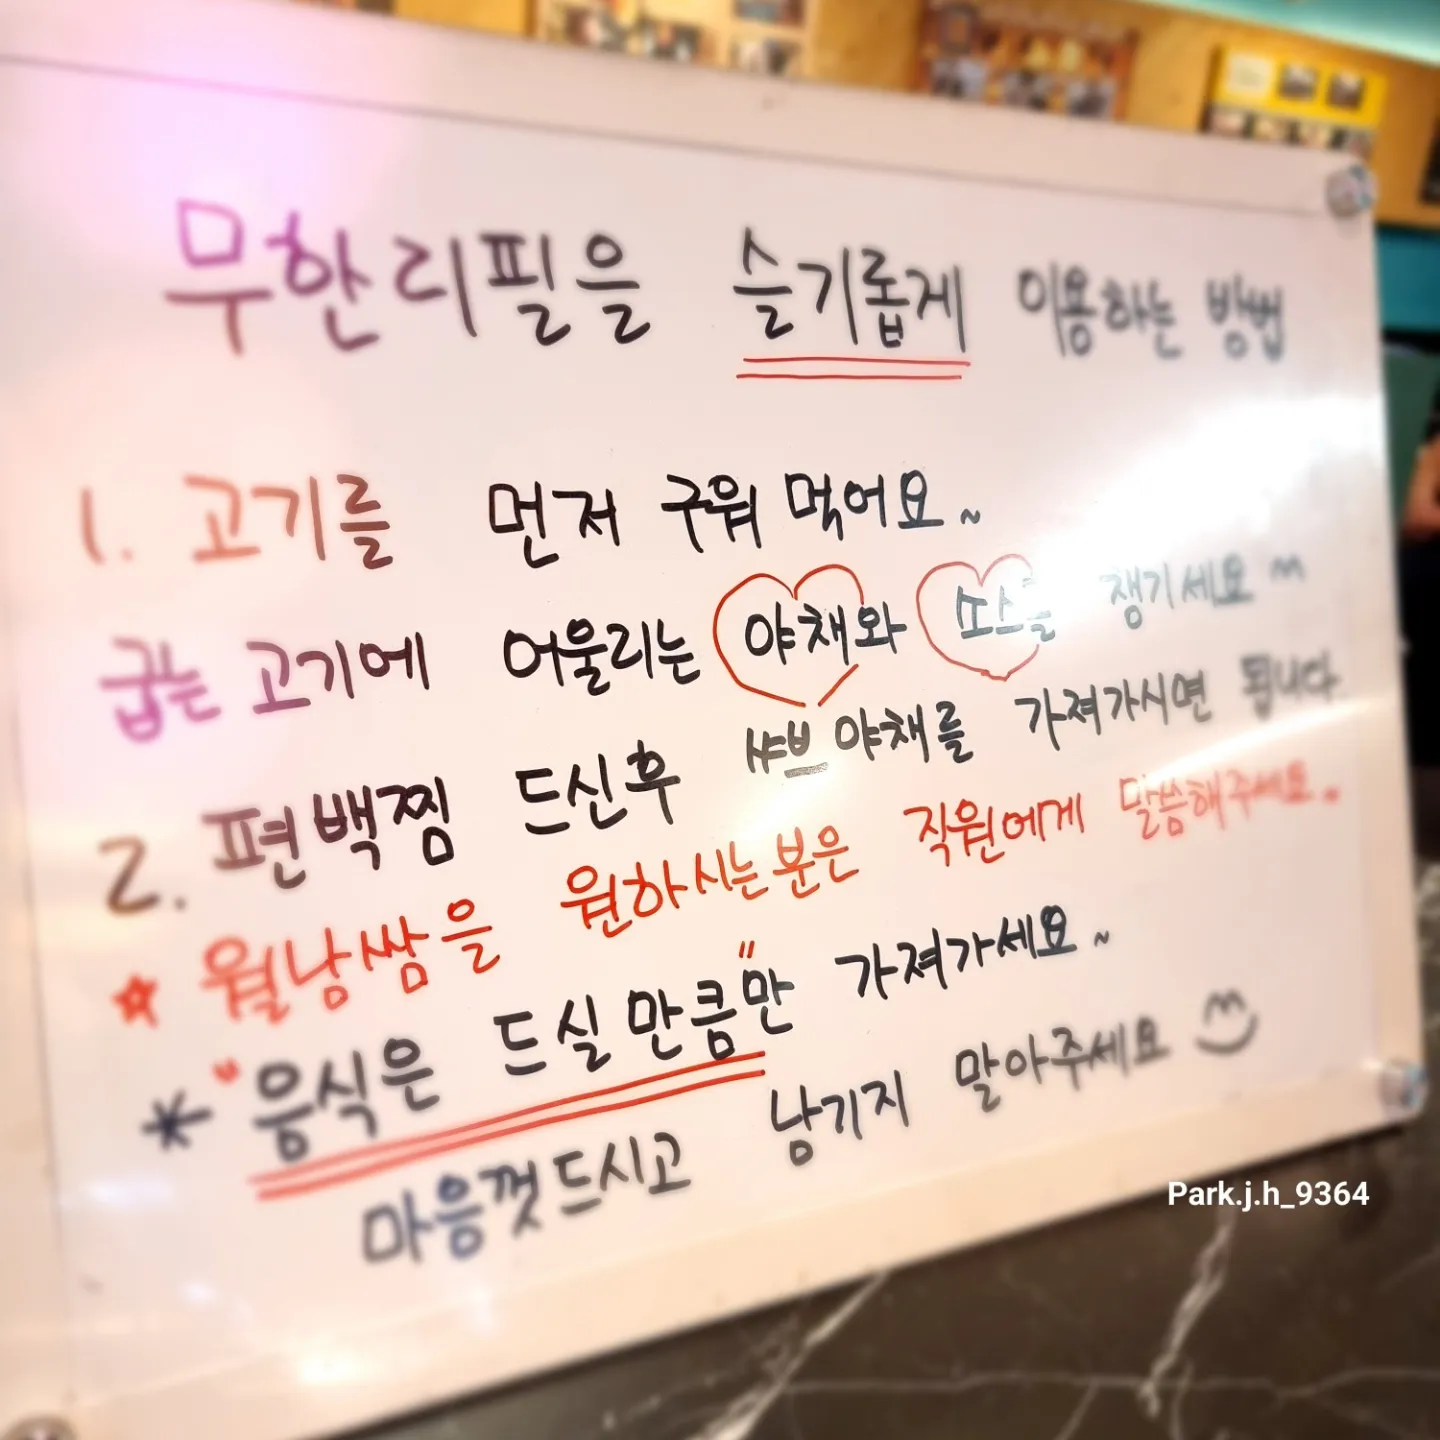 무한리필을 슬기롭게 이용하는 방법
1. 고기를 먼저 구워 먹어요~
굽는 고기에 어울리는 야채와 소스를 챙기세요
2. 편백찜 드신후 샤브 야채를 가져가시면 됩니다.
☆ 월남쌈을 원하시는분은 직원에게 말씀해주세요.
* "음식은 드실 만큼"만 가져가세요~
마음껏 드시고 남기지 말아주세요
Park.j.h_9364